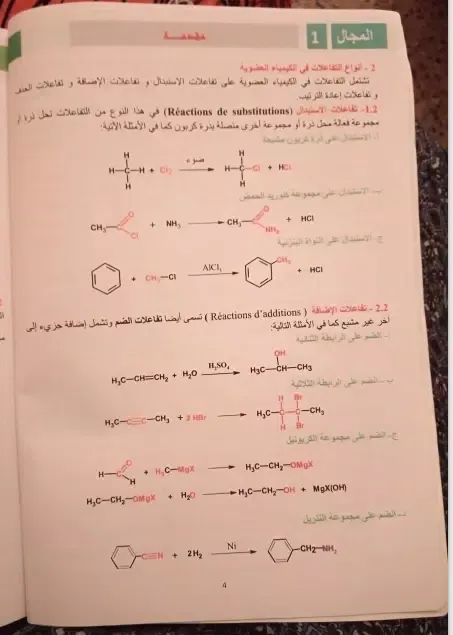 المجال 1 مقدمة
2 - أنواع التفاعلات في الكيمياء العضوية
تشتمل التفاعلات في الكيمياء العضوية على تفاعلات الاستبدال و تفاعلات الإضافة و تفاعلات الحذف
و تفاعلات إعادة الترتيب.
1.2- تفاعلات الاستبدال (Réactions de substitutions) في هذا النوع من التفاعلات تحل ذرة أو
مجموعة فعالة محل ذرة أو مجموعة أخرى متصلة بذرة كربون كما في الأمثلة الآتية:
أ- الاستبدال على ذرة كربون مشبعة
H H
H–C–H + Cl₂ ضوء H–C–Cl + HCl
H H
ب- الاستبدال على مجموعة كلوريد الحمض
CH₃–C O Cl + NH₃ CH₃–C O NH₂ + HCl
ج- الاستبدال على النواة البنزينية
+ CH₃–Cl AlCl₃ CH₃ + HCl
2.2- تفاعلات الإضافة (Réactions d'additions) تسمى أيضا تفاعلات الضم وتشمل إضافة جزيء إلى
آخر غير مشبع كما في الأمثلة التالية:
أ- الضم على الرابطة الثنائية
OH
H₃C–CH=CH₂ + H₂O H₂SO₄ H₃C–CH–CH₃
ب- الضم على الرابطة الثلاثية
H Br
H₃C–C≡C–CH₃ + 2 HBr H₃C–C–C–CH₃
H Br
ج- الضم على مجموعة الكربونيل
H–C O H + H₃C–MgX H₃C–CH₂–OMgX
H₃C–CH₂–OMgX + H₂O H₃C–CH₂–OH + MgX(OH)
د- الضم على مجموعة النتريل
C≡N + 2H₂ Ni CH2–NH₂
4